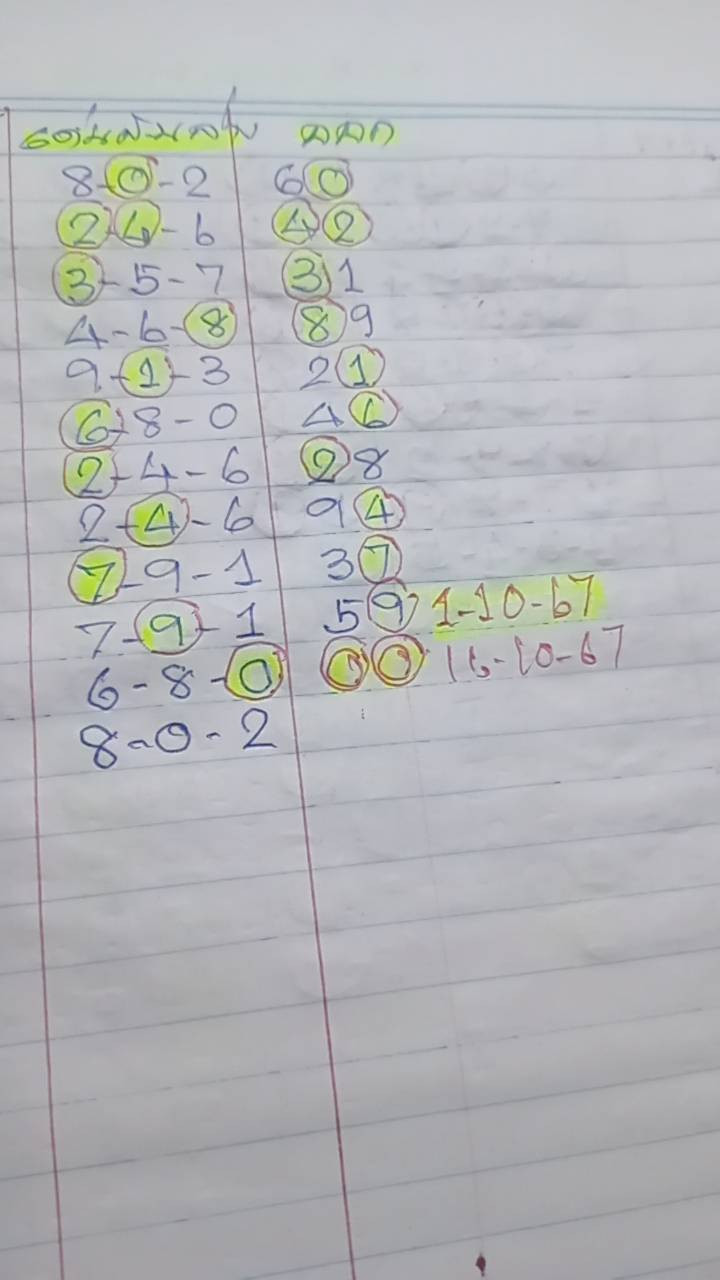 เด่นบนล่าง ออก
8-0-2 60
2-4-6 42
3-5-7 31
4-6-8 89
9-1-3 21
6-8-0 46
2-4-6 28
2-4-6 94
7-9-1 37
7-9-1 59 1-10-67
6-8-0 00 16-10-67
8-0-2